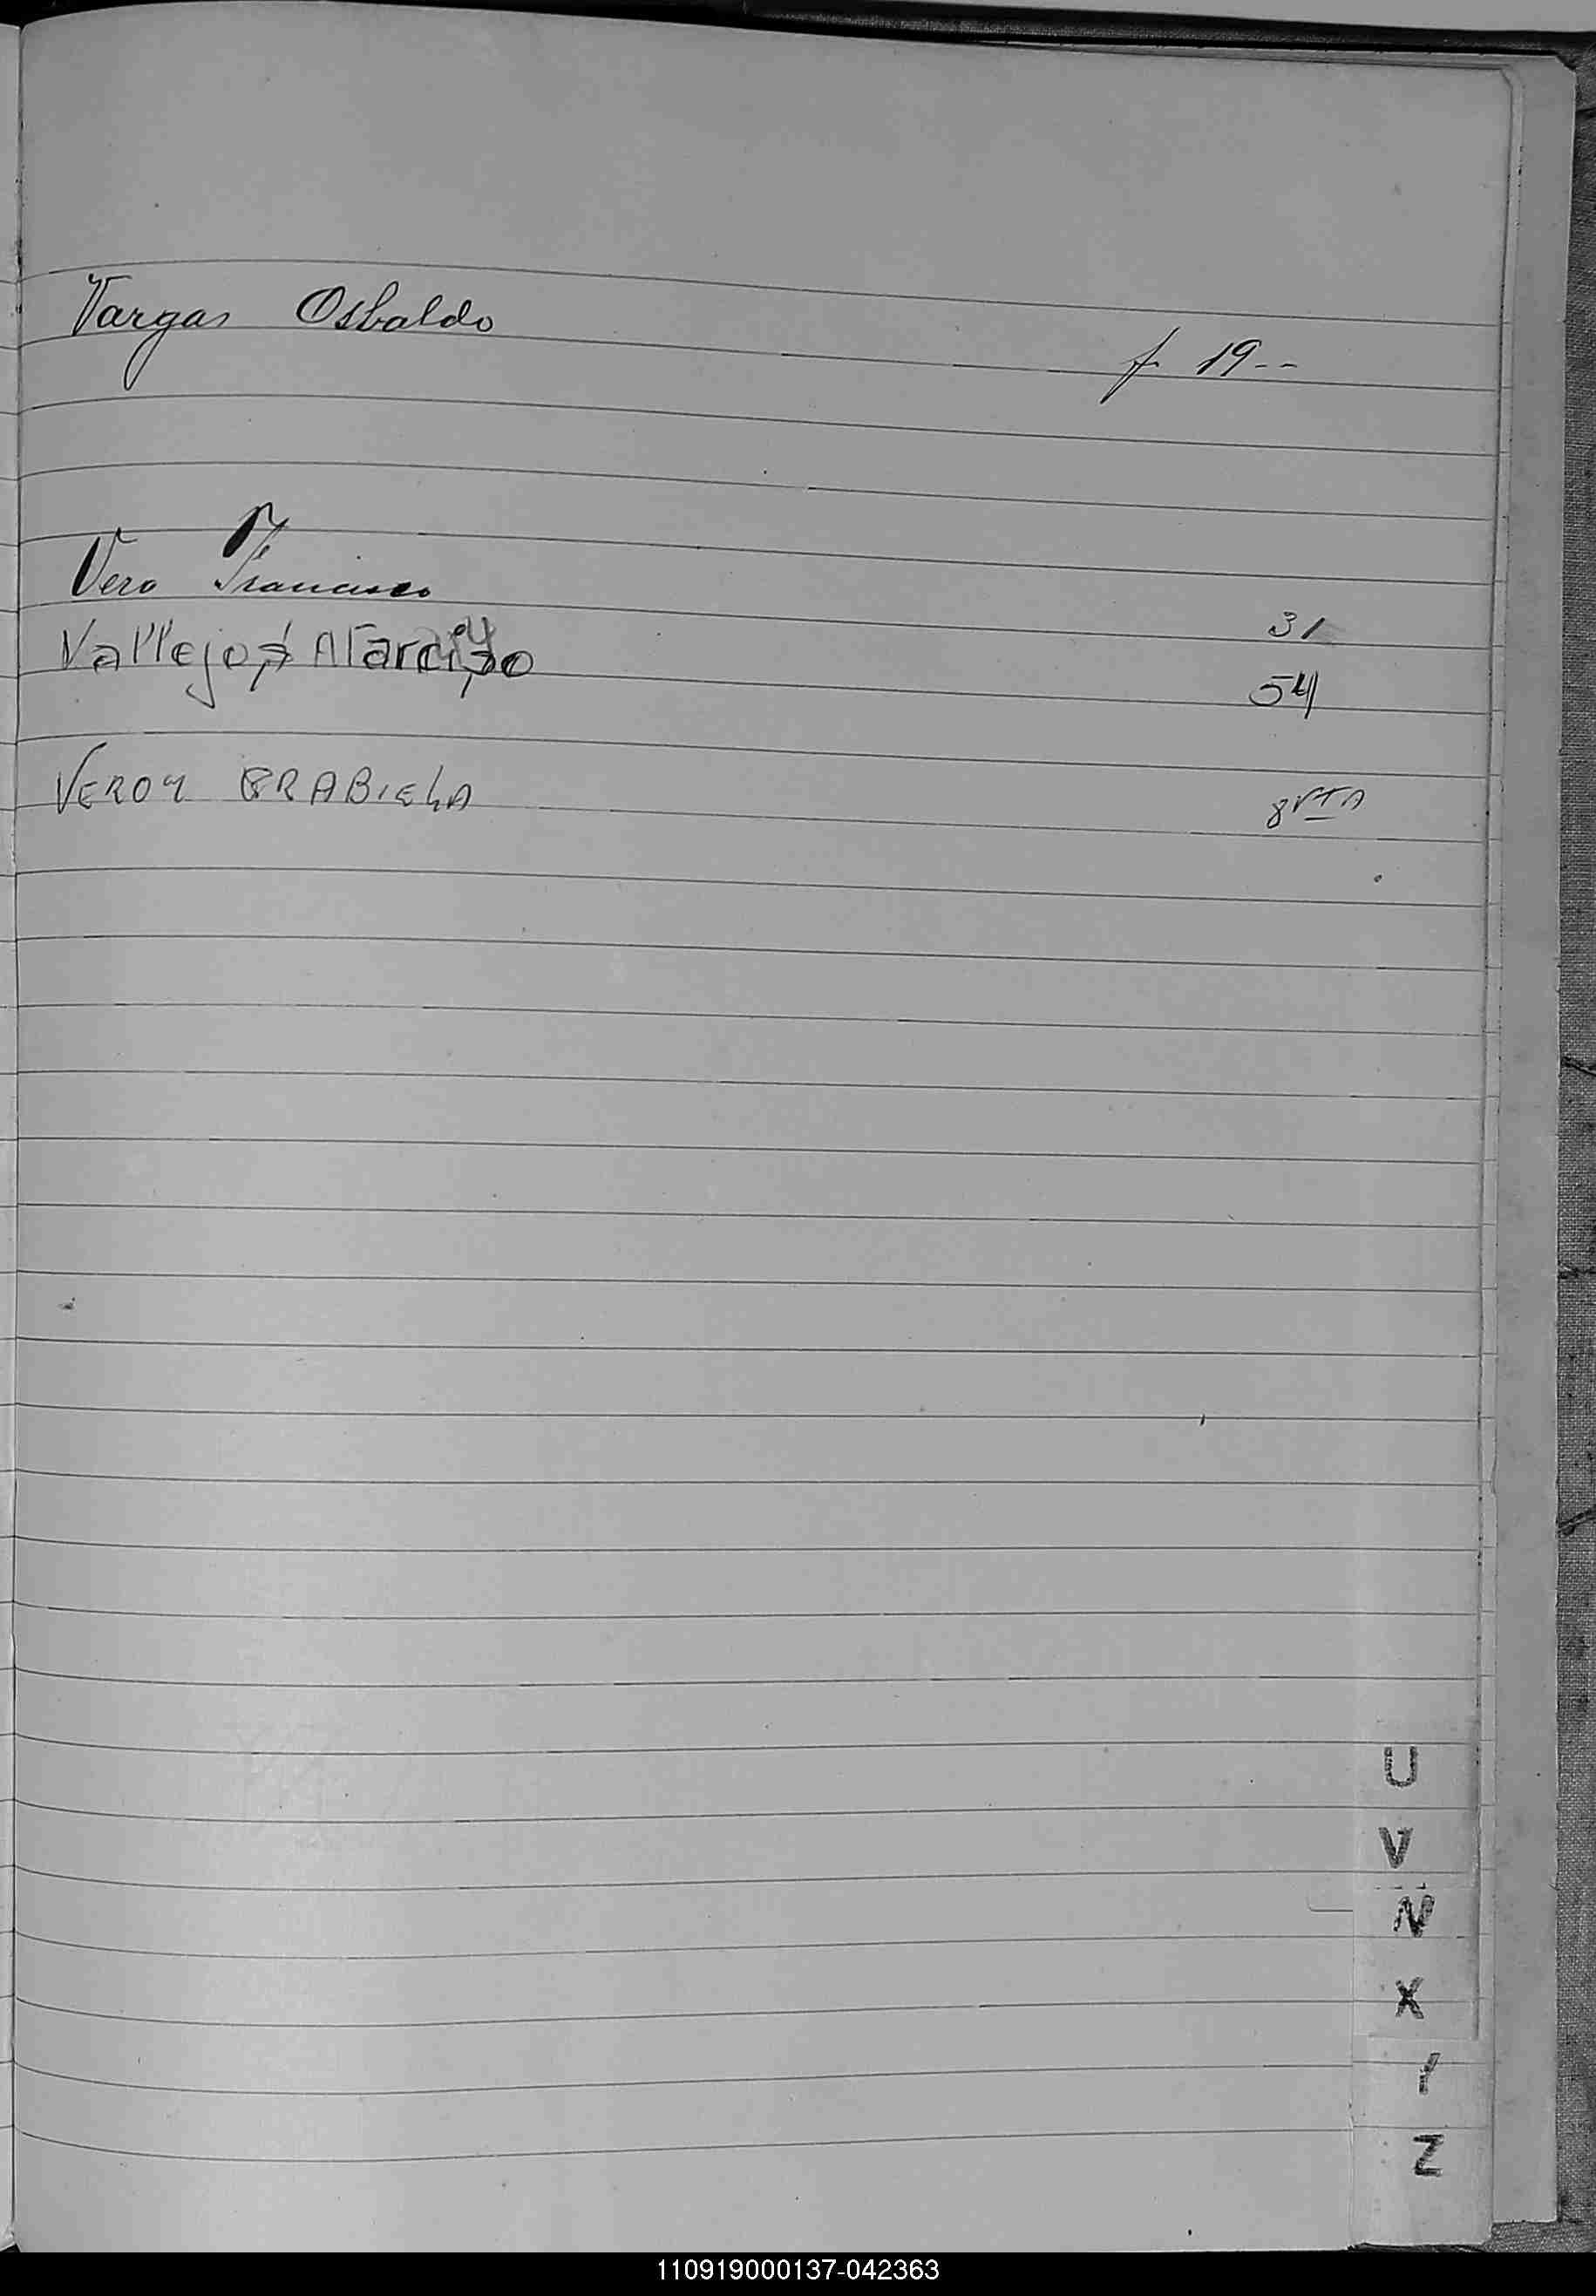 Vargas Osbaldo f 19--
Vero Francisco 31
Vallejos 54
VERON GRABIELA 8 VTA
U
V
N
X
Z
110919000137-042363